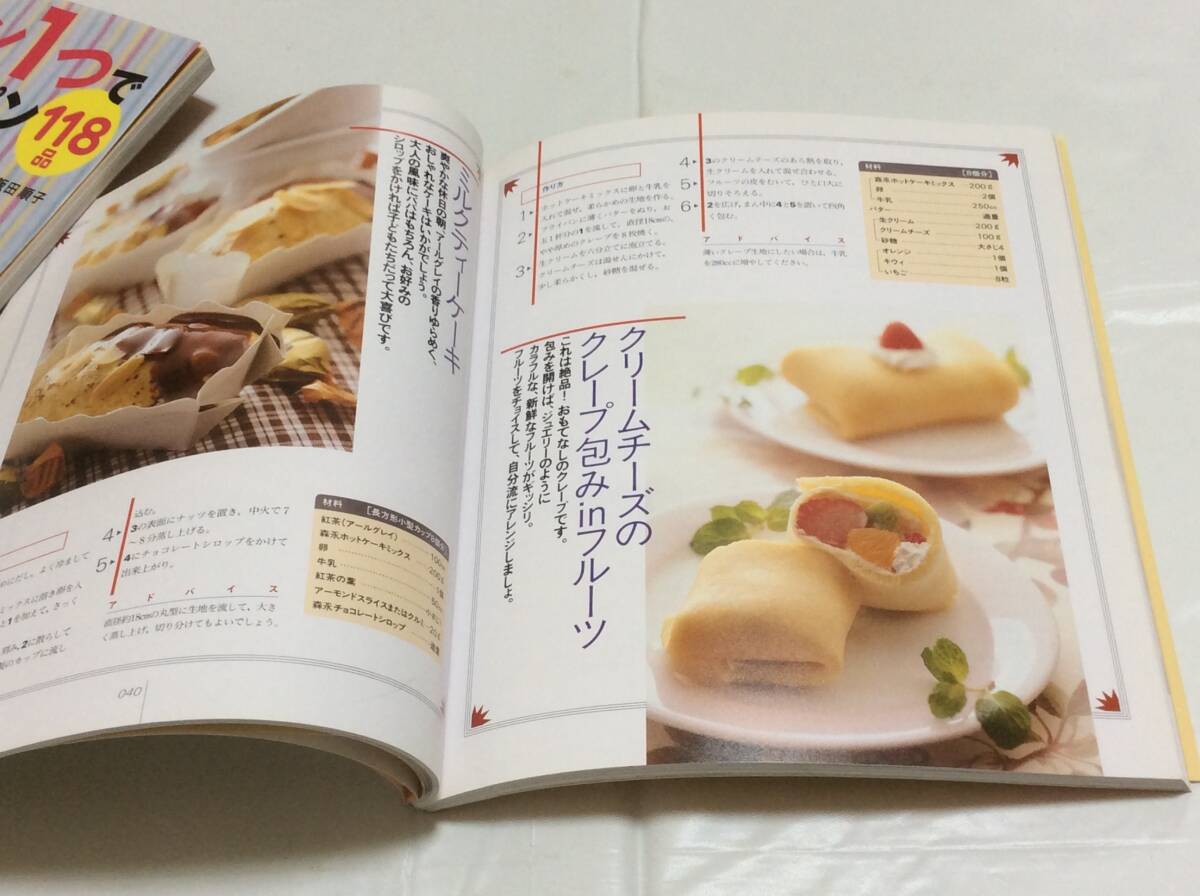 1つで
118
品
飯田順子
ミルクティーケーキ
爽やかな休日の朝、アールグレイの香りゆらめく、
おしゃれなケーキはいかがでしょう。
大人の風味にパパはもちろん、お好みの
シロップをかければ子どもたちだって大喜びです。
めにだし、よく冷まして
ミックスに溶き卵を入
と1を加えて、さっく
刻み、2に散らして
製のカップに流し
込む。
4 3の表面にナッツを置き、中火で7
〜8分蒸し上げる。
5 4にチョコレートシロップをかけて
出来上がり。
アドバイス
直径約18cmの丸型に生地を流して、大き
く蒸し上げ、切り分けてもよいでしょう。
材料
紅茶(アールグレイ) 100cc
森永ホットケーキミックス 200g
卵 1個
牛乳 50cc
紅茶の葉
アーモンドスライスまたはクルミ 20g
森永チョコレートシロップ 適量
040
作り方
1 ホットケーキミックスに卵と牛乳を
入れて混ぜ、柔らかめの生地を作る。
2 フライパンに薄くバターをぬり、お
玉1杯分の1を流して、直径18cmの、
やや厚めのクレープを8枚焼く。
3 生クリームを六分立てに泡立てる。
クリームチーズは湯せんにかけて、
少し柔らかくし、砂糖を混ぜる。
4 3のクリームチーズのあら熱を取り、
生クリームを入れて混ぜ合わせる。
5 フルーツの皮をむいて、ひと口大に
切りそろえる。
6 2を広げ、まん中に4と5を置いて四角
く包む。
アドバイス
薄いクレープ生地にしたい場合は、牛乳
を280ccに増やしてください。
材料 [8個分]
森永ホットケーキミックス 200g
卵 2個
牛乳 250cc
バター 適量
生クリーム 200g
クリームチーズ 100g
砂糖 大さじ4
オレンジ 1個
キウイ 1個
いちご 8粒
クリームチーズの
クレープ包みinフルーツ
これは絶品!おもてなしのクレープです。
包みを開けば、ジュエリーのように
カラフルな、新鮮なフルーツがギッシリ。
フルーツをチョイスして、自分流にアレンジしましょ。